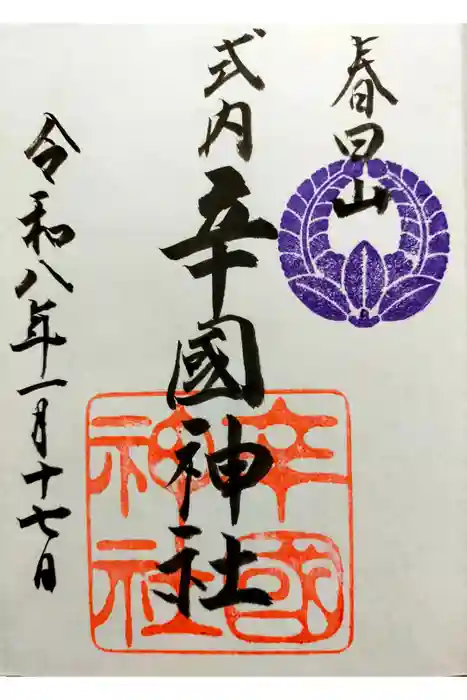 春日山
式内 辛國神社
令和八年一月十七日
辛國
神社